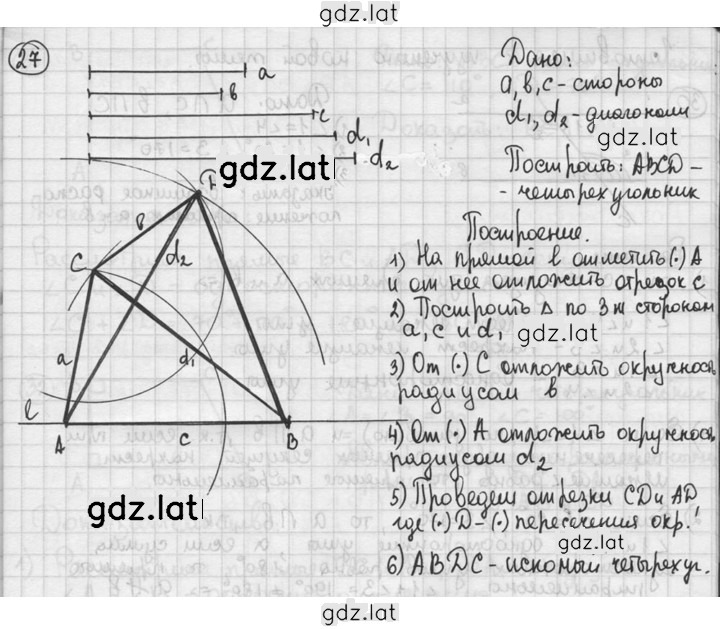 gdz.lat
27
a
в
c
d₁
d₂
gdz.lat
Дано:
a, в, c - стороны
d₁, d₂ - диагонали
gdz.lat
Построить: ABCD -
- четырехугольник
Построение.
1) На прямой в отметить (·) A
и от нее отложить отрезок c
2) Построить Δ по 3м сторонам
a, c и d₁
gdz.lat
3) От (·) C отложить окружнось
радиусом в
4) От (·) A отложить окружнось
радиусом d₂
5) Проведем отрезки CD и AD
где (·) D - (·) пересечения окр.
gdz.lat
6) ABDC - искомый четырехуг.
в
d₂
C
a
d₁
l
A
c
B
gdz.lat
gdz.lat